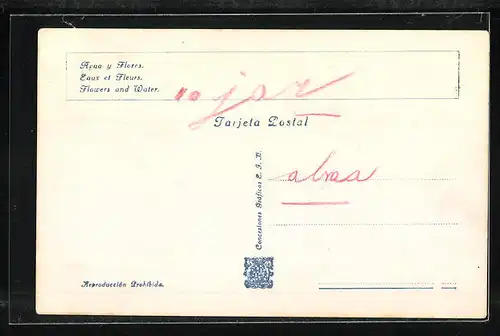 Agua y Flores.
Eaux et Fleurs.
Flowers and Water.
Tarjeta Postal
Concesiones Gráficas E. I. D.
Reproducción Prohibida.